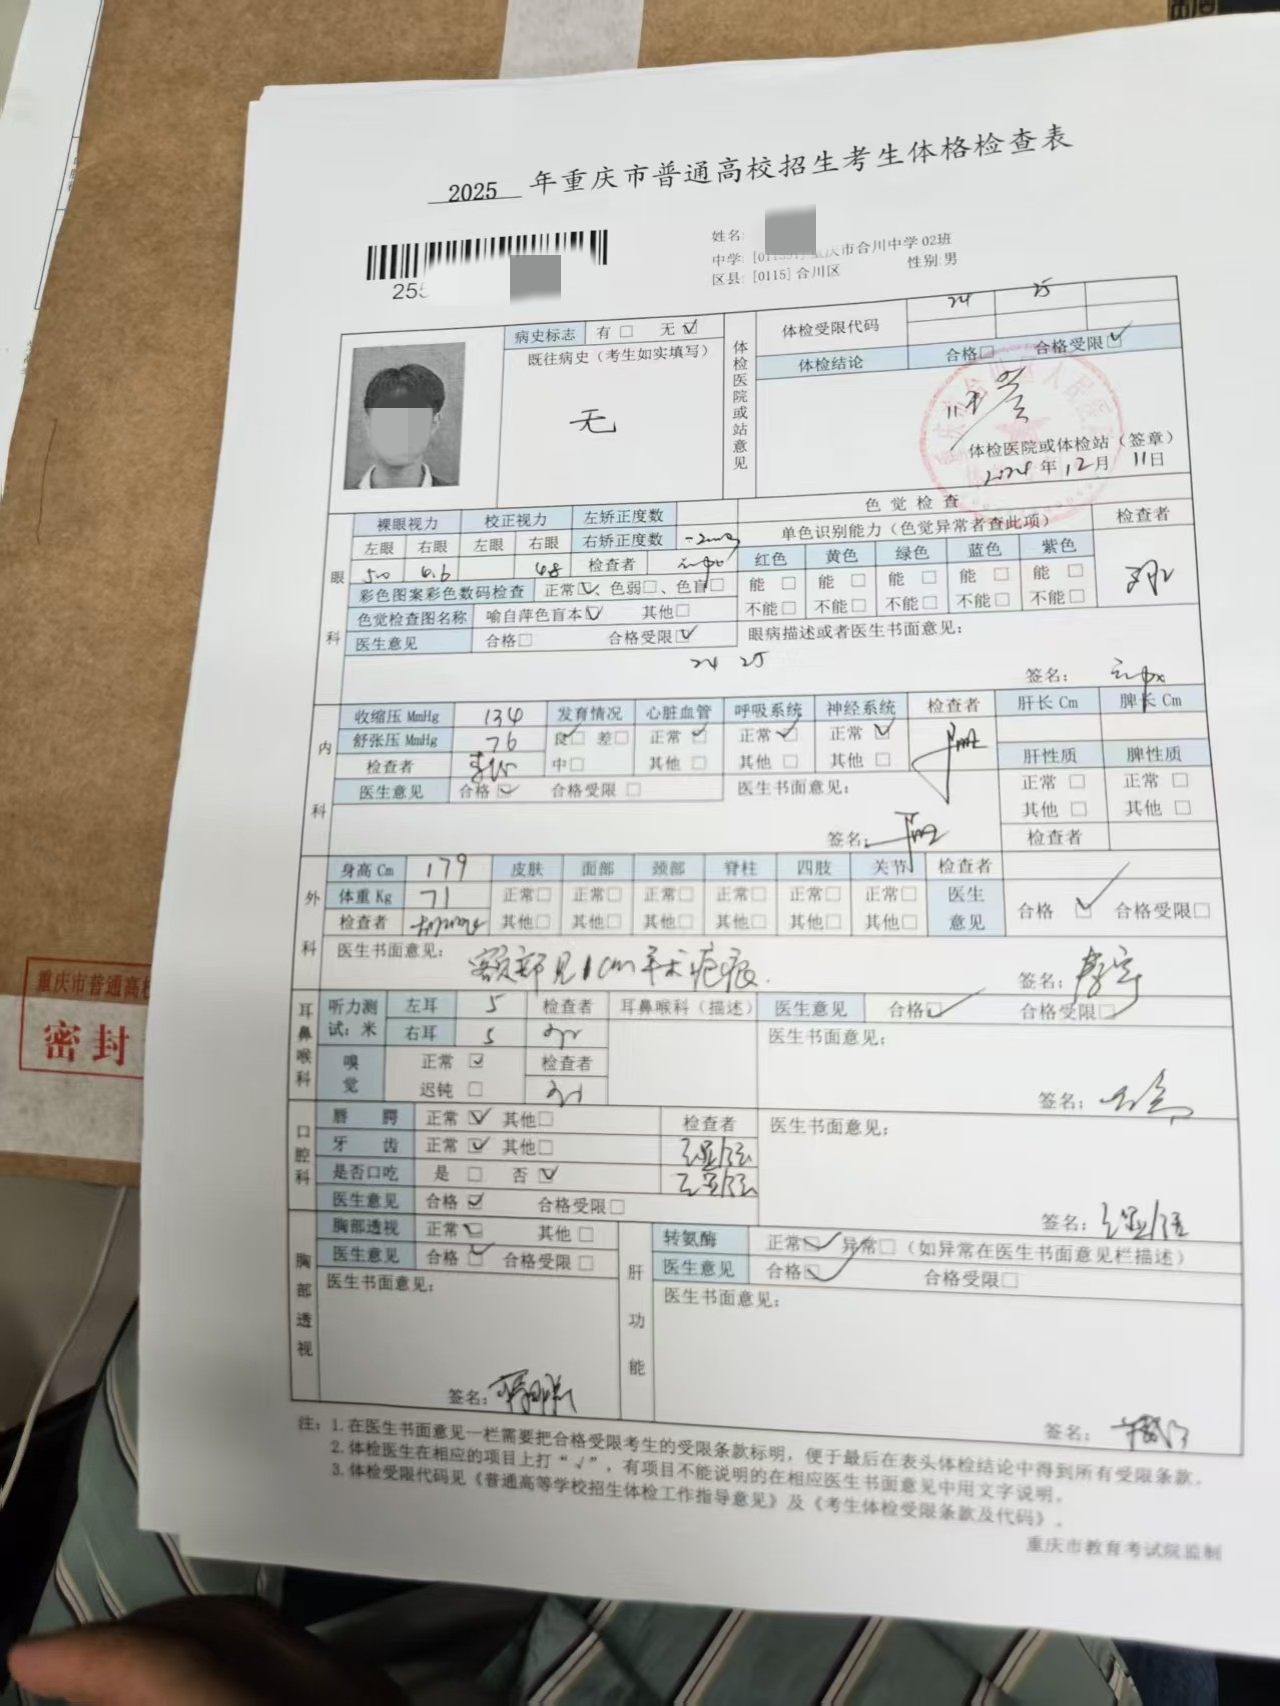 2025 年重庆市普通高校招生考生体格检查表
255
姓名:
中学: 重庆市合川中学 02班
区县: [0115] 合川区 性别:男
病史标志 有□ 无☑
既往病史（考生如实填写）
无
体检医院或站意见
体检受限代码 24 25
体检结论 合格□ 合格受限☑
体检医院或体检站（签章）
2024年12月11日
眼科
裸眼视力 校正视力 左矫正度数
左眼 右眼 左眼 右眼 右矫正度数
5.0 4.6 4.8 检查者
彩色图案彩色数码检查 正常☑、色弱□、色盲□
色觉检查图名称 喻自萍色盲本☑ 其他□
医生意见 合格□ 合格受限☑
24 25
色觉检查
单色识别能力（色觉异常者查此项） 检查者
红色 黄色 绿色 蓝色 紫色
能□ 能□ 能□ 能□ 能□
不能□ 不能□ 不能□ 不能□ 不能□
眼病描述或者医生书面意见：
签名：
内科
收缩压 MmHg 134 发育情况 心脏血管 呼吸系统 神经系统 检查者 肝长 Cm 脾长 Cm
舒张压 MmHg 76 良☑ 差□ 正常☑ 正常☑ 正常☑
检查者 中□ 其他□ 其他□ 其他□ 肝性质 脾性质
医生意见 合格☑ 合格受限□ 医生书面意见： 正常□ 正常□
其他□ 其他□
签名： 检查者
外科
身高 Cm 179 皮肤 面部 颈部 脊柱 四肢 关节 检查者
体重 Kg 71 正常□ 正常□ 正常□ 正常□ 正常□ 正常□ 医生意见 合格☑ 合格受限□
检查者 其他□ 其他□ 其他□ 其他□ 其他□ 其他□
医生书面意见： 额部见1cm手术疤痕.
签名：
耳鼻喉科
听力测试：米 左耳 5 检查者 耳鼻喉科（描述） 医生意见 合格☑ 合格受限□
右耳 5 医生书面意见：
嗅觉 正常☑ 检查者
迟钝□ 签名：
口腔科
唇腭 正常☑ 其他□ 检查者 医生书面意见：
牙齿 正常☑ 其他□
是否口吃 是□ 否☑
医生意见 合格☑ 合格受限□ 签名：
胸部透视
胸部透视 正常☑ 其他□
医生意见 合格☑ 合格受限□
医生书面意见：
签名：
肝功能
转氨酶 正常☑ 异常□（如异常在医生书面意见栏描述）
医生意见 合格☑ 合格受限□
医生书面意见：
签名：
注：1.在医生书面意见一栏需要把合格受限考生的受限条款标明，便于最后在表头体检结论中得到所有受限条款。
2.体检医生在相应的项目上打“√”，有项目不能说明的在相应医生书面意见中用文字说明。
3.体检受限代码见《普通高等学校招生体检工作指导意见》及《考生体检受限条款及代码》。
重庆市教育考试院监制
重庆市普通高校
密封